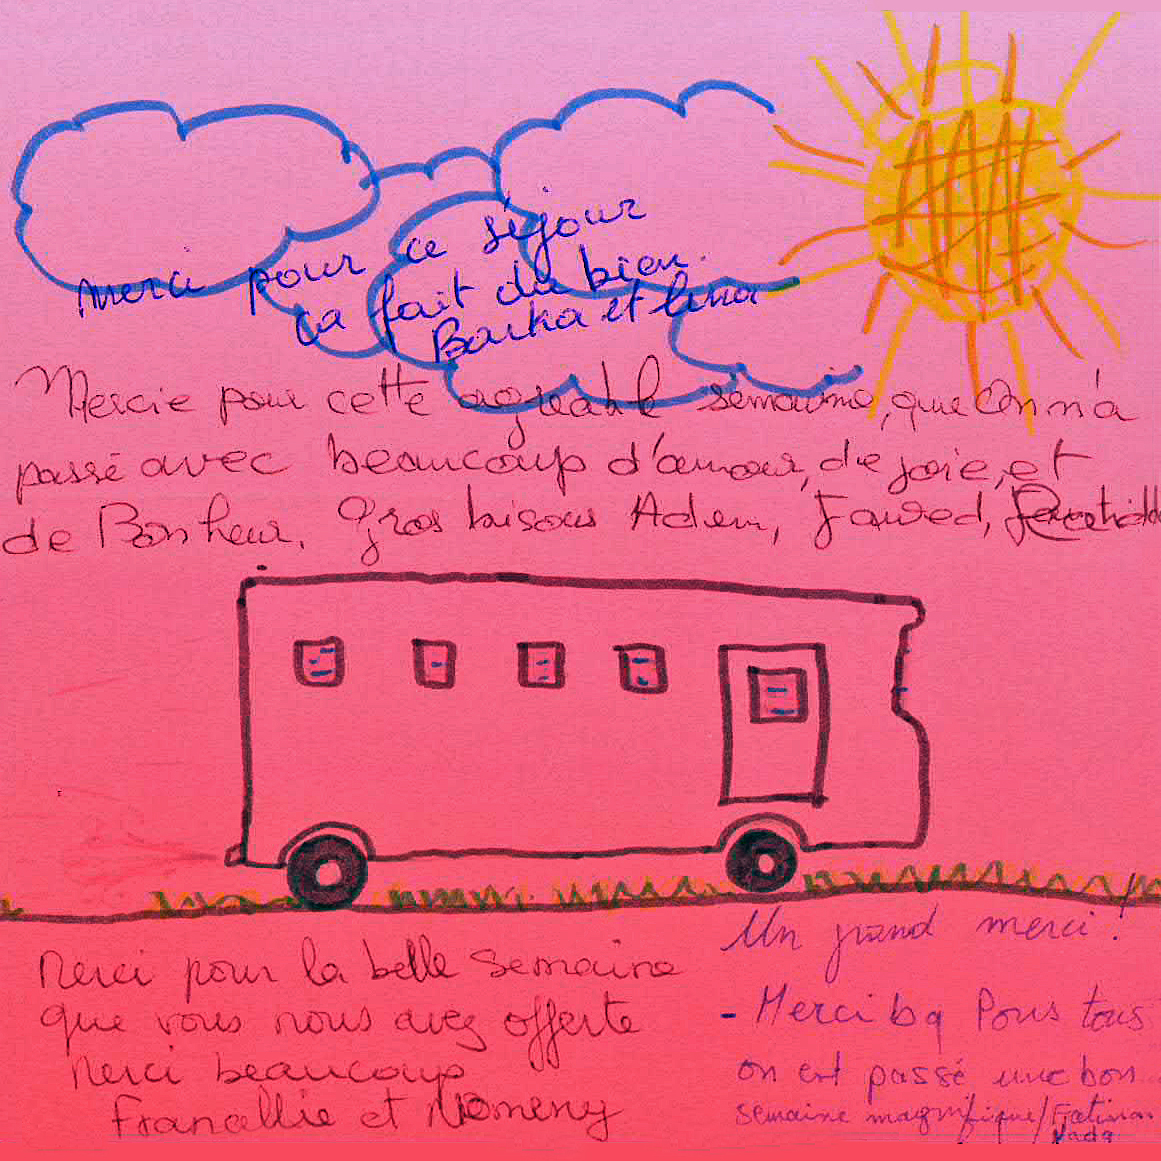 merci pour ce séjour
ça fait du bien.
Barka et lina
Mercie pour cette agreable semaine, que l'on n'a
passé avec beaucoup d'amour, de joie, et
de Bonheur. Gros bisous Adem, Fawed,
Merci pour la belle semaine
que vous nous avez offerte
Merci beaucoup
Francellie et
Un grand merci !
- Merci bq Pous tous
on est passé une bon
semaine magnifique/Fatima
Nada